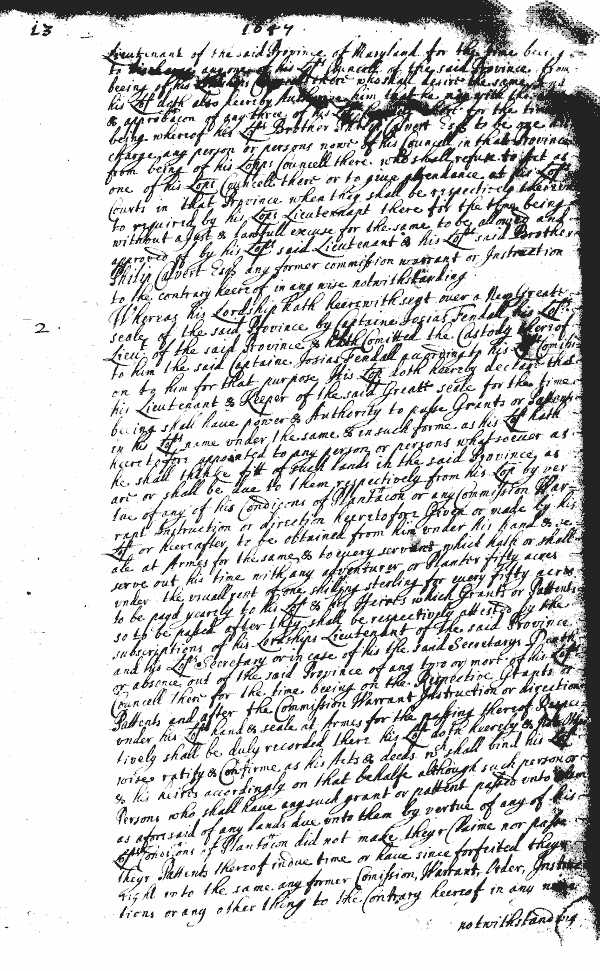 13 1657
Lieutenant of the said Province of Maryland for the time being
to any one of his Lopps Councell of the said Province from
beeing of his Councell there who shall desire the same
his Lopp doth also hereby Authorize him
& approbacon of any three of his for the time
being whereof his Lopps Brother Philip Calvert Esqr to be one
charge any person or persons now of his Councell in that Province
from being of his Lopps Councell there who shall refuse to act as
one of his Lopps Councell there or to give attendance at his Lopps
Courts in that Province when they shall be respectively thereunto
required by his Lopps Lieutennant there for the time being
without a just & lawfull excuse for the same to be allowed and
approved of by his Lopps said Lieutenant & his Lopps said Brother
Philip Calvert Esqr any former commission warrant or Instruction
to the contrary heereof in any wise notwithstanding
2 Whereas his Lordship hath heerewith sent over a New Greate
seale of the said Province by Captaine Josias Fendall his Lopps
Lieut of the said Province & hath Comitted the Custody thereof
to him the said Captaine Josias Fendall pursuant to his Lopps Comissi
on to him for that purpose His Lopp doth heereby declare that
his Lieutenant & Keeper of the said Greate seale for the time
being shall have power & Authority to passe Grants or Pattents
in his Lopps name under the same & in such forme as his Lopp hath
heeretofore appointed to any person or persons whatsoever as
he shall thinke fitt of such lands in the said Province as
are or shall be due to them respectively from his Lopp by ver
tue of any of his Condicons of Plantacon or any Commission War
rant Instruction or direction heeretofore Given or made by his
Lopp or heereafter to be obtained from him under his hand & se
ale at Armes for the same & to every servant which hath or shall
serve out his time with any adventurer or Planter fifty acres
under the usuall rent of one shilling sterling for every fifty acres
to be payd yearely to his Lopp & his Heires which Grants or Pattents
so to be passed after they shall be respectively attested by the
subscriptions of his Lordships Lieutenant of the said Province
and his Lopps Secretary or in case of his the said Secretarys Death
or absence out of the said Province of any two or more of his Lopps
Councell there for the time beeing on the Respective Grants or
Pattents and after the Commission Warrant Instruction or direction
under his Lopps hand & seale at Armes for the passing thereof Respec
tively shall be duly recorded there his Lopp doth heereby
wise ratify & Confirme as his Acts & deeds wch shall bind his Lopp
& his heires accordingly on that behalfe although such person or
Persons who shall have any such grant or pattent passed unto them
as aforesaid of any lands due unto them by vertue of any of his
Lopps Condicons of Plantacon did not make theyr Claime nor passe
theyr Pattents thereof in due time or have since forfeited theyr
right unto the same any former Comission, Warrant, Order, Instruc
tions or any other thing to the Contrary heereof in any wise
notwithstanding